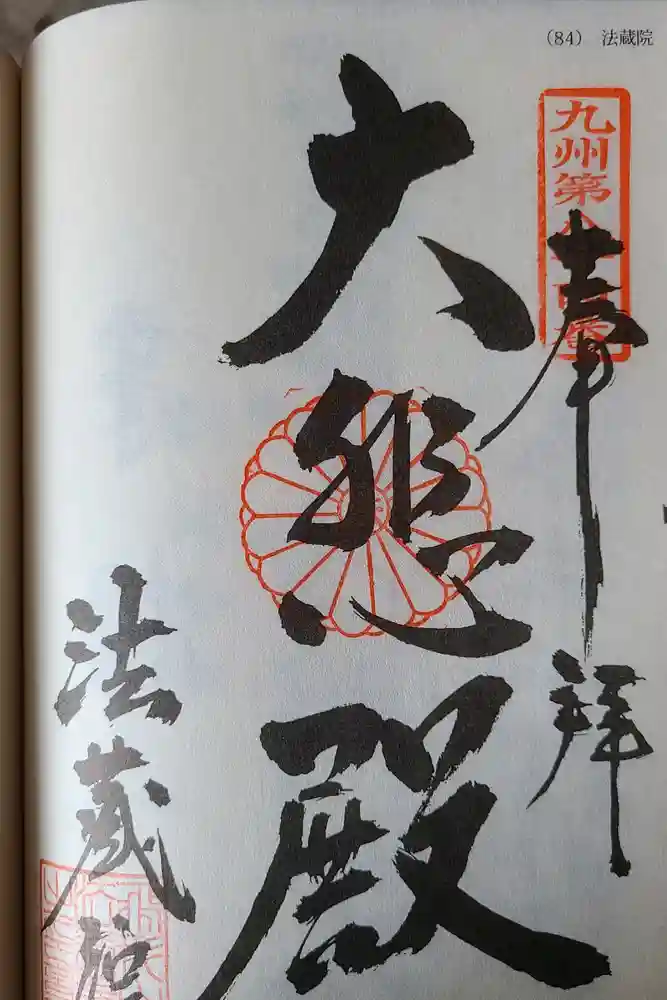 (84) 法蔵院
九州第八十四番
奉拝
大悲殿
法蔵院